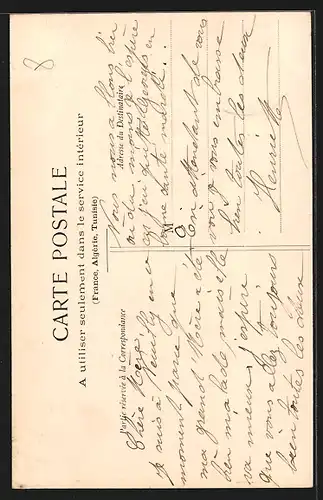 CARTE POSTALE
A utiliser seulement dans le service intérieur
(France, Algérie, Tunisie)
Partie réservée à la Correspondance
Adresse du Destinataire
Je suis à Neuilly en ce
moment parce que
ma grand Mère a été
bien malade mais elle
va mieux. J'espère
que vous allez toujours
bien toutes les deux
Nous nous allons bien
ou du moins je l'espère
car j'ai quitté Georges en
bonne santé mardi.
En attendant de vous
voir je vous embrasse
bien toutes les deux
Henriette
8